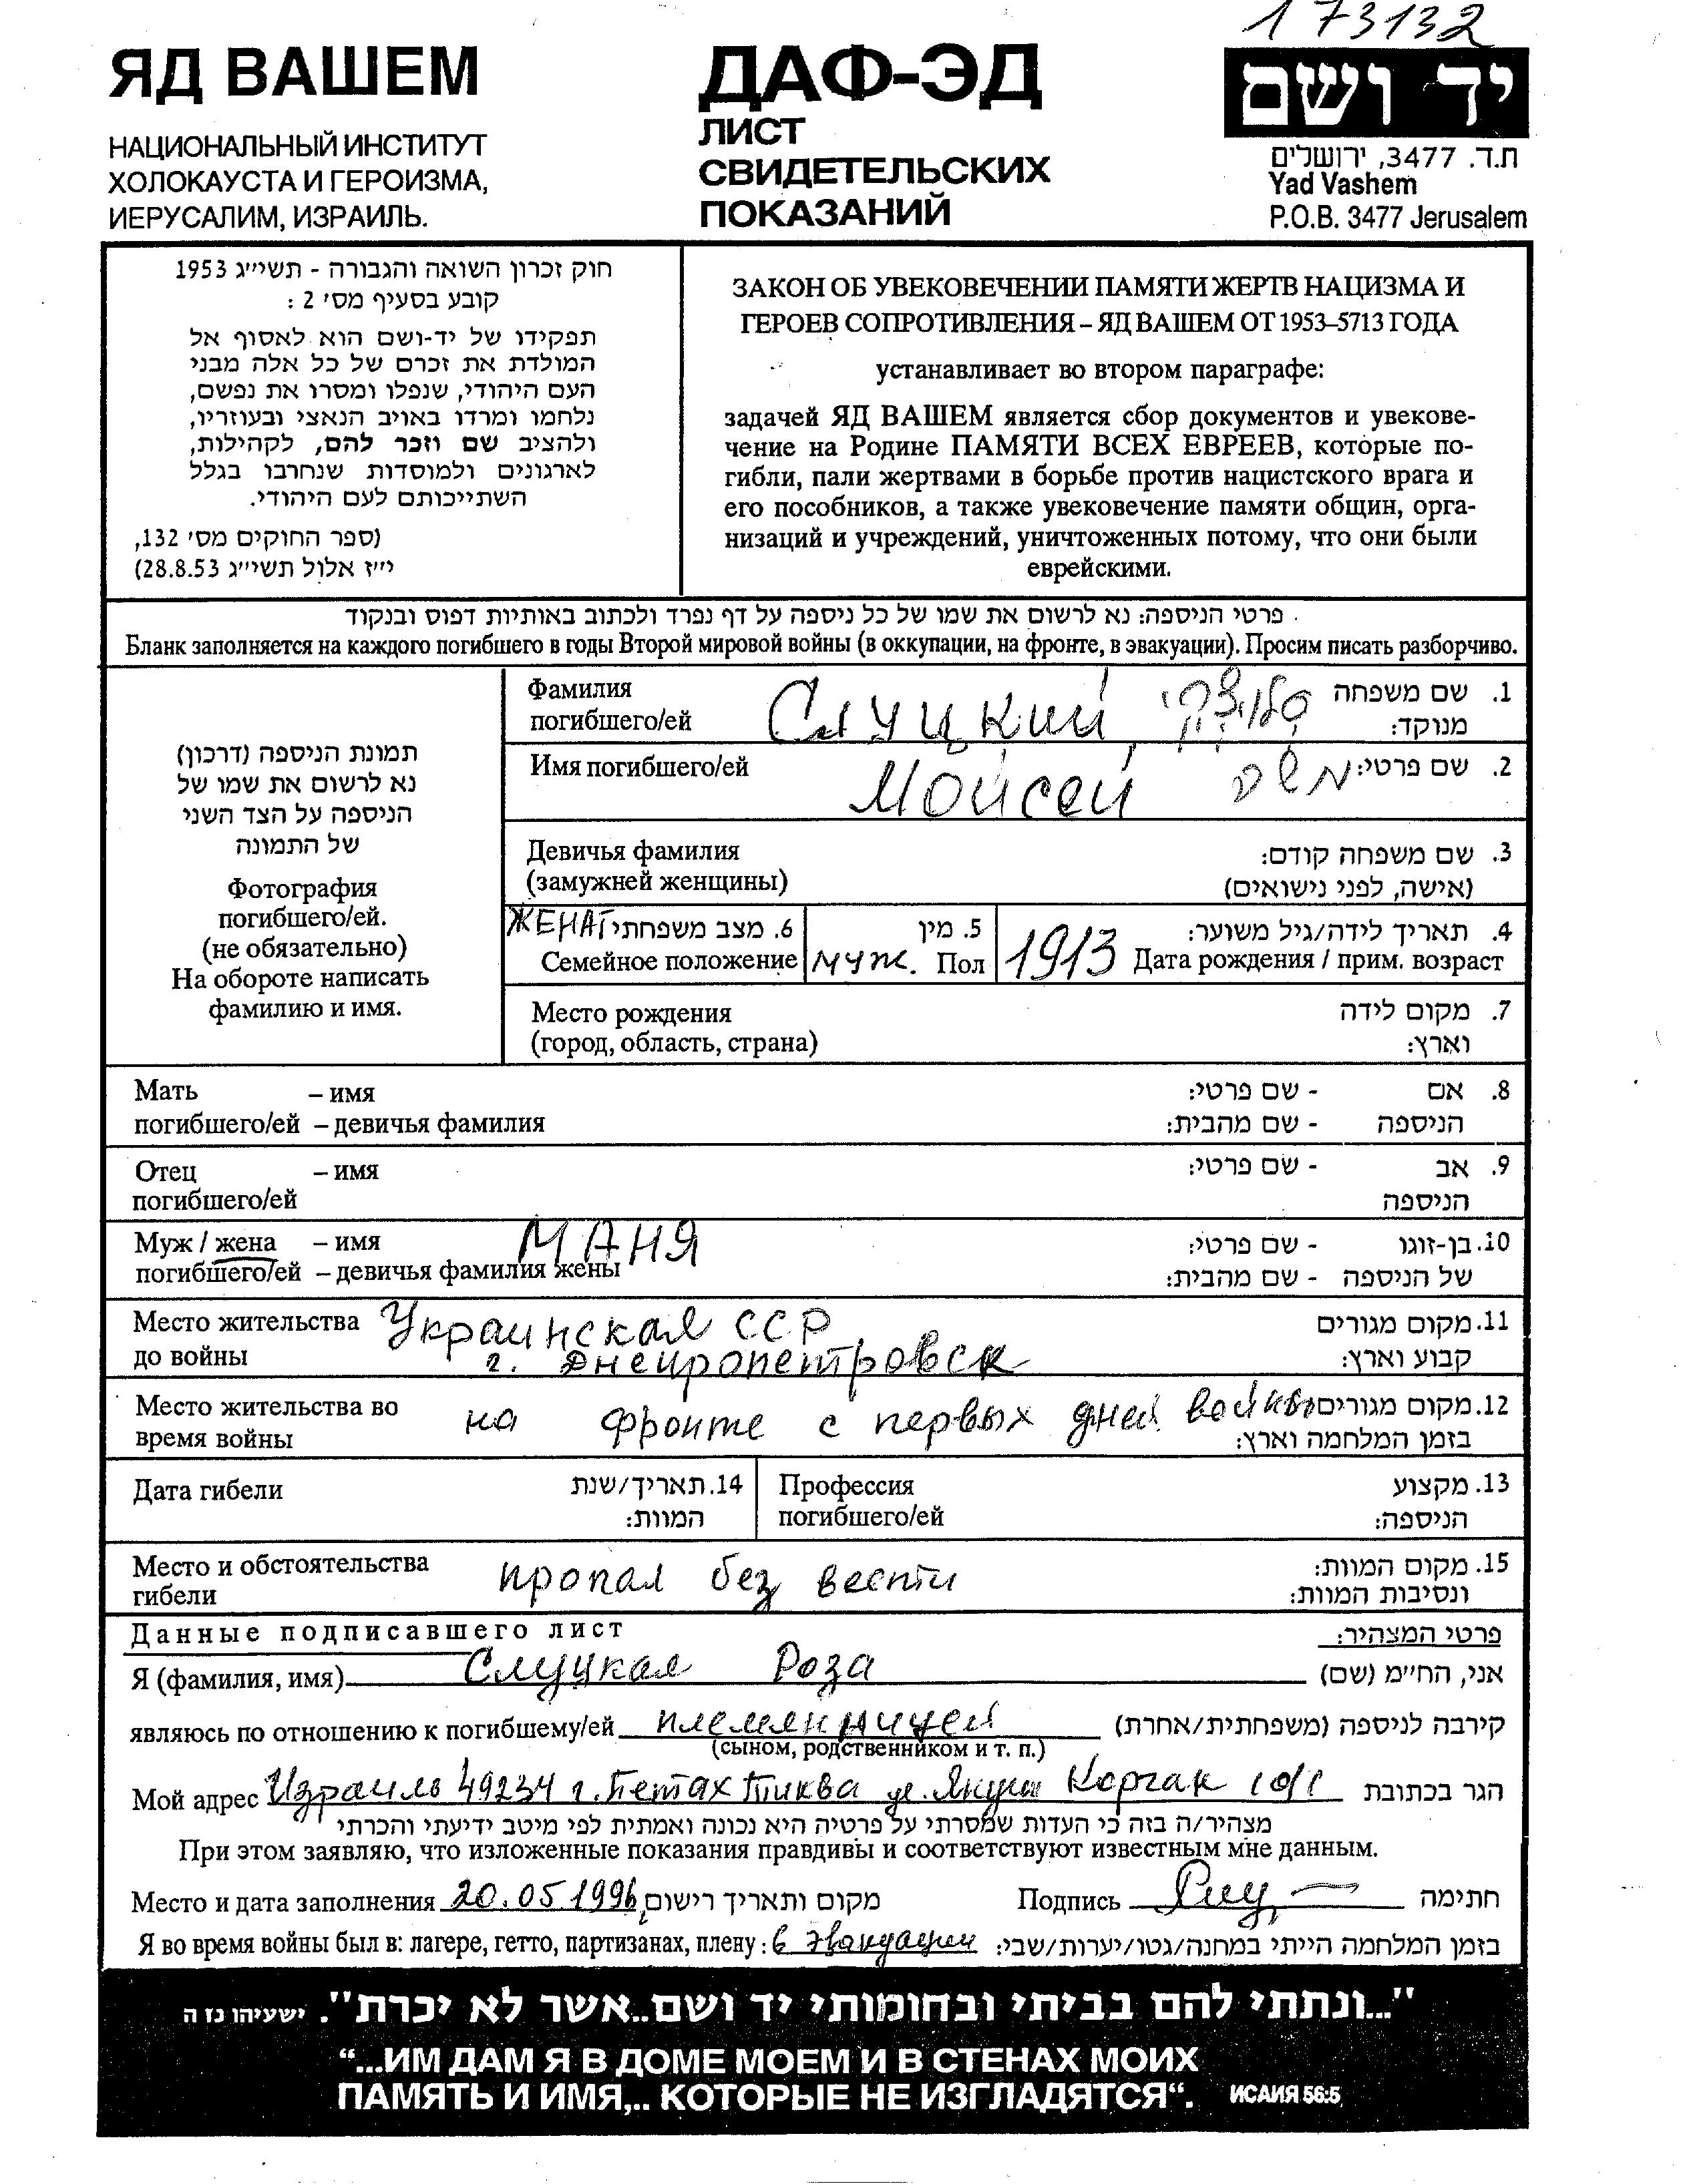 173132
ЯД ВАШЕМ
НАЦИОНАЛЬНЫЙ ИНСТИТУТ
ХОЛОКАУСТА И ГЕРОИЗМА,
ИЕРУСАЛИМ, ИЗРАИЛЬ.
ДАФ-ЭД
ЛИСТ
СВИДЕТЕЛЬСКИХ
ПОКАЗАНИЙ
יד ושם
ת.ד. 3477, ירושלים
Yad Vashem
P.O.B. 3477 Jerusalem
חוק זכרון השואה והגבורה - תשי״ג 1953
קובע בסעיף מס׳ 2 :
תפקידו של יד-ושם הוא לאסוף אל
המולדת את זכרם של כל אלה מבני
העם היהודי, שנפלו ומסרו את נפשם,
נלחמו ומרדו באויב הנאצי ובעוזריו,
ולהציב שם וזכר להם, לקהילות,
לארגונים ולמוסדות שנחרבו בגלל
השתייכותם לעם היהודי.
(ספר החוקים מס׳ 132,
י״ז אלול תשי״ג 28.8.53)
ЗАКОН ОБ УВЕКОВЕЧЕНИИ ПАМЯТИ ЖЕРТВ НАЦИЗМА И
ГЕРОЕВ СОПРОТИВЛЕНИЯ – ЯД ВАШЕМ ОТ 1953–5713 ГОДА
устанавливает во втором параграфе:
задачей ЯД ВАШЕМ является сбор документов и увекове-
чение на Родине ПАМЯТИ ВСЕХ ЕВРЕЕВ, которые по-
гибли, пали жертвами в борьбе против нацистского врага и
его пособников, а также увековечение памяти общин, орга-
низаций и учреждений, уничтоженных потому, что они были
еврейскими.
פרטי הניספה: נא לרשום את שמו של כל ניספה על דף נפרד ולכתוב באותיות דפוס ובנקוד
Бланк заполняется на каждого погибшего в годы Второй мировой войны (в оккупации, на фронте, в эвакуации). Просим писать разборчиво.
תמונת הניספה (דרכון)
נא לרשום את שמו של
הניספה על הצד השני
של התמונה
Фотография
погибшего/ей.
(не обязательно)
На обороте написать
фамилию и имя.
Фамилия Слуцкий 1. שם משפחה
погибшего/ей מנוקד:
Имя погибшего/ей Мойсей משה 2. שם פרטי:
Девичья фамилия 3. שם משפחה קודם:
(замужней женщины) (אישה, לפני נישואים)
ЖЕНАТ 6. מצב משפחתי 5. מין 4. תאריך לידה/גיל משוער:
Семейное положение муж. Пол 1913 Дата рождения / прим. возраст
Место рождения 7. מקום לידה
(город, область, страна) וארץ:
Мать – имя - שם פרטי: 8. אם
погибшего/ей – девичья фамилия - שם מהבית: הניספה
Отец – имя - שם פרטי: 9. אב
погибшего/ей הניספה
Муж / жена – имя МАНЯ - שם פרטי: 10. בן-זוגו
погибшего/ей – девичья фамилия жены - שם מהבית: של הניספה
Место жительства Украинская ССР 11. מקום מגורים
до войны г. Днепропетровск קבוע וארץ:
Место жительства во на фронте с первых дней войны 12. מקום מגורים
время войны בזמן המלחמה וארץ:
Дата гибели 14. תאריך/שנת המוות:
Профессия 13. מקצוע
погибшего/ей הניספה:
Место и обстоятельства пропал без вести 15. מקום המוות:
гибели ונסיבות המוות:
Данные подписавшего лист פרטי המצהיר:
Я (фамилия, имя) Слуцкая Роза אני, הח״מ (שם)
являюсь по отношению к погибшему/ей племянницей קירבה לניספה (משפחתית/אחרת)
(сыном, родственником и т. п.)
Мой адрес Израиль 49234 г. Петах Тиква ул. Корчак 10/1 הגר בכתובת
מצהיר/ה בזה כי העדות שמסרתי על פרטיה היא נכונה ואמתית לפי מיטב ידיעתי והכרתי
При этом заявляю, что изложенные показания правдивы и соответствуют известным мне данным.
Место и дата заполнения 20.05.1996 מקום ותאריך רישום Подпись חתימה
Я во время войны был в: лагере, гетто, партизанах, плену: в эвакуации בזמן המלחמה הייתי במחנה/גטו/יערות/שבי:
"...ונתתי להם בביתי ובחומותי יד ושם..אשר לא יכרת". ישעיהו נז ה
“...ИМ ДАМ Я В ДОМЕ МОЕМ И В СТЕНАХ МОИХ
ПАМЯТЬ И ИМЯ,.. КОТОРЫЕ НЕ ИЗГЛАДЯТСЯ“. ИСАИЯ 56:5